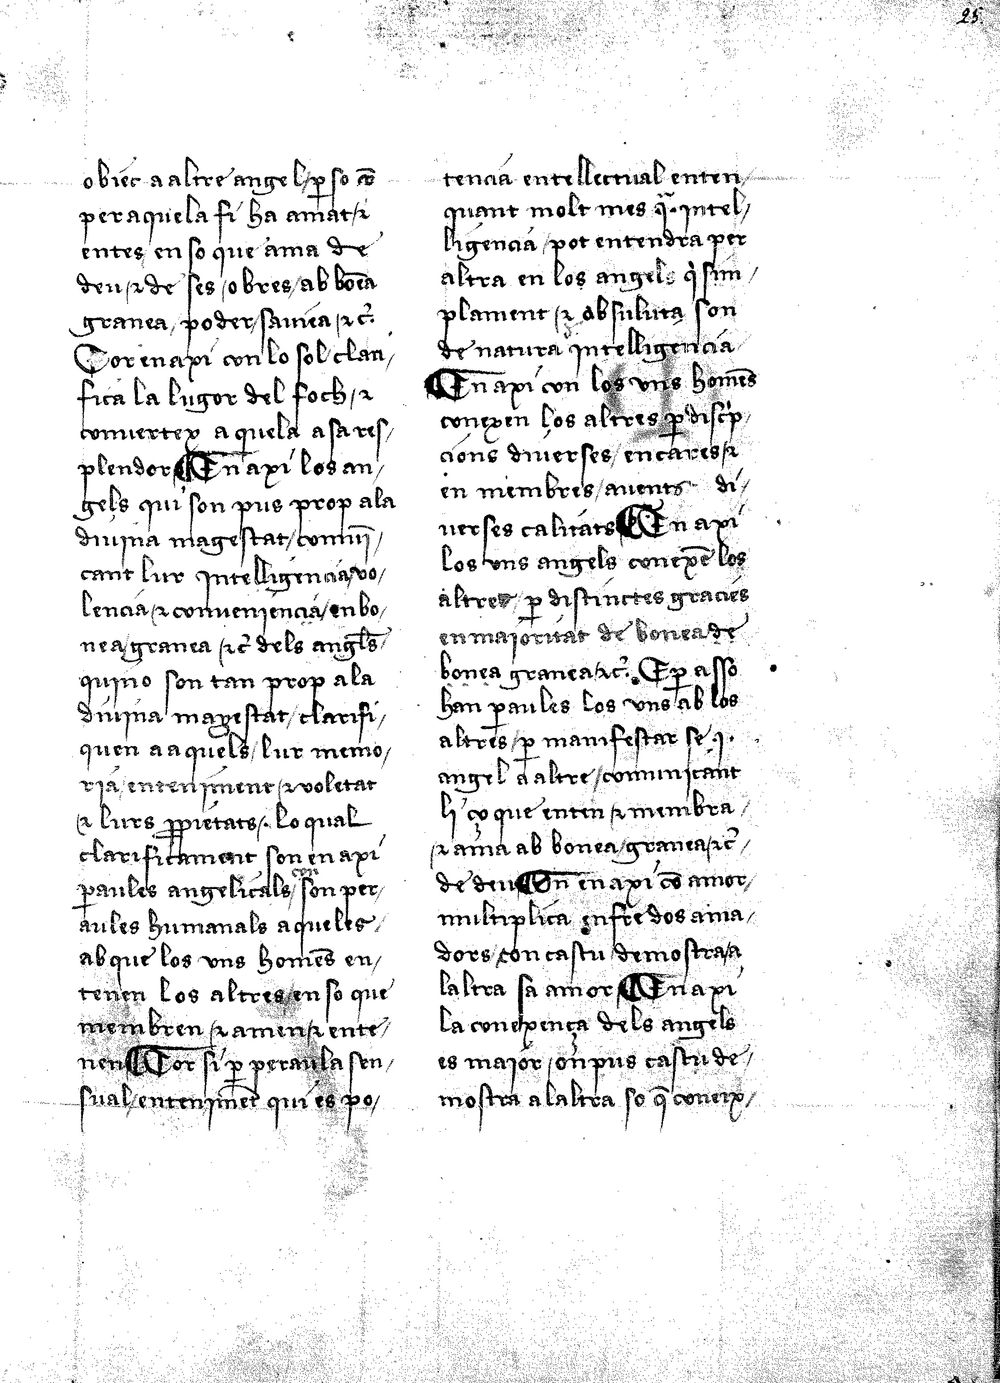 25
obiec a altre angel / ꝑ so cõ
per aquela fi ha amat / ⁊
entes en so que ama de
deu / ⁊ de ses / obres / ab bõea
granea / poder / sauiea / ⁊c̃.
Cor en axi con lo sol / clari /
fica la lugor del foch / ⁊
conuertex aquela a sa res /
plendor En axi los an /
gels qui son pus prop a la
diuina magestat / comuni /
cant lur intelligencia / vo /
lencia / ⁊ conueniencia / en bo /
nea / granea / ⁊c̃ dels angl̃s /
qui no son tan prop a la
diuina magestat / clarifi /
quen a aquels / lur memo /
ria / enteniment / ⁊ voletat
⁊ lurs ꝓpietats / . lo qual
clarificament son en axi
ꝑaules angelicals / con son per /
aules humanals aqueles /
ab que los vns homẽs en /
tenen los altres / en so que
membren / ⁊ amen / ⁊ ente /
nen Cor si ꝑ peraula sen /
sual / entenimẽt qui es po /
tencia entellectual enten /
quant molt mes q̃ . intel /
ligencia / pot entendra per
altra en los angels q̇ sim /
plament / ⁊ absuluta son
de natura intelligencia
En axi con los vns homẽs
conexen los altres ꝑ discꝑ /
cions diuerses / en cares / ⁊
en membres / auents di /
uerses calitats En axi
los vns angels conexẽ los
altres / ꝑ distinctes gracies
en maioritat de bonea de
bonea granea / ⁊c̃ . E ꝑ asso
han ꝑaules los vns ab los
altres / ꝑ manifestar se . i .
angel a altre / comunicant
li ço que enten / ⁊ membra /
⁊ ama ab bonea / granea / ⁊c̃ /
de deu On en axi cõ amor /
multiplica enfre dos ama /
dors / con castu / demostra / a
laltra sa amor En axi
la conexença dels angels
es maior / on pus castu de /
mostra a laltra so q̃ coneix /